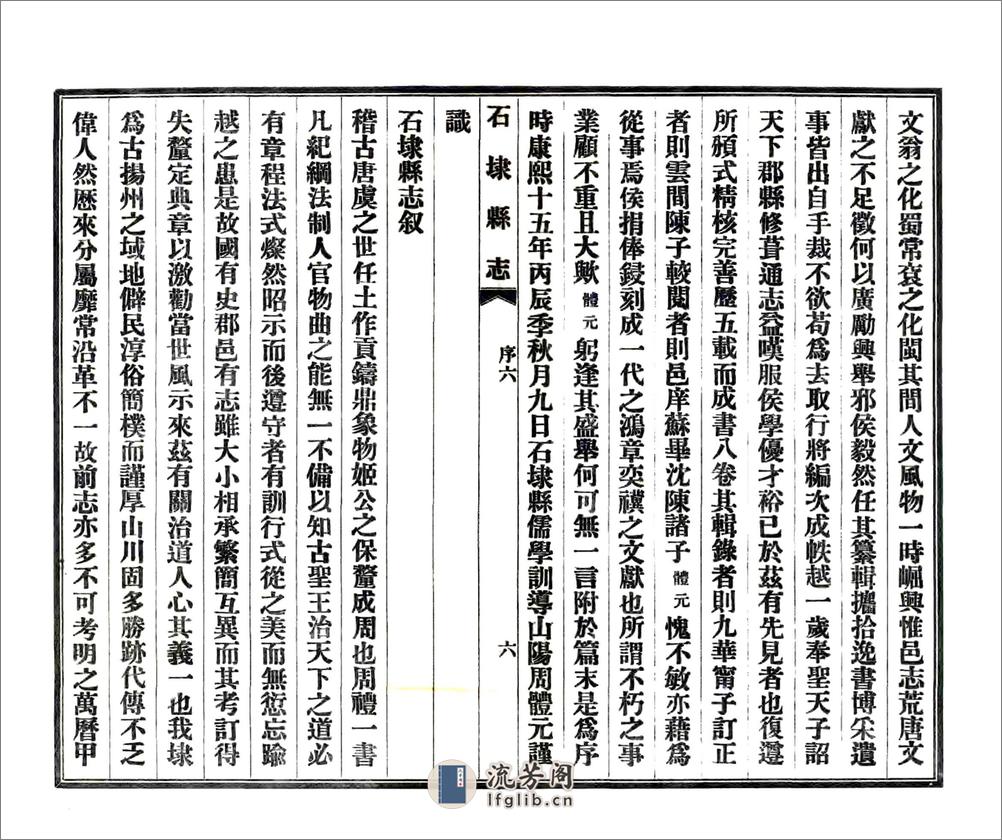 文翁之化蜀常袞之化閩其間人文風物一時崛興惟邑志荒唐文
獻之不足徵何以廣勵興舉邪侯毅然任其纂輯攟拾逸書博采遺
事皆出自手裁不欲苟爲去取行將編次成帙越一歲奉聖天子詔
天下郡縣修葺通志益嘆服侯學優才裕已於茲有先見者也復遵
所頒式精核完善歷五載而成書八卷其輯錄者則九華甯子訂正
者則雲間陳子較閱者則邑庠蘇畢沈陳諸子體元愧不敏亦藉爲
從事焉侯捐俸鋟刻成一代之鴻章奕禩之文獻也所謂不朽之事
業顧不重且大歟體元躬逢其盛舉何可無一言附於篇末是爲序
時康熙十五年丙辰季秋月九日石埭縣儒學訓導山陽周體元謹
石埭縣志 序六 六
識
石埭縣志叙
稽古唐虞之世任土作貢鑄鼎象物姬公之保釐成周也周禮一書
凡紀綱法制人官物曲之能無一不備以知古聖王治天下之道必
有章程法式燦然昭示而後遵守者有訓行式從之美而無愆忘踰
越之患是故國有史郡邑有志雖大小相承繁簡互異而其考訂得
失釐定典章以激勸當世風示來茲有關治道人心其義一也我埭
爲古揚州之域地僻民淳俗簡樸而謹厚山川固多勝跡代傳不乏
偉人然歷來分屬靡常沿革不一故前志亦多不可考明之萬曆甲
流芳阁
lfglib.cn